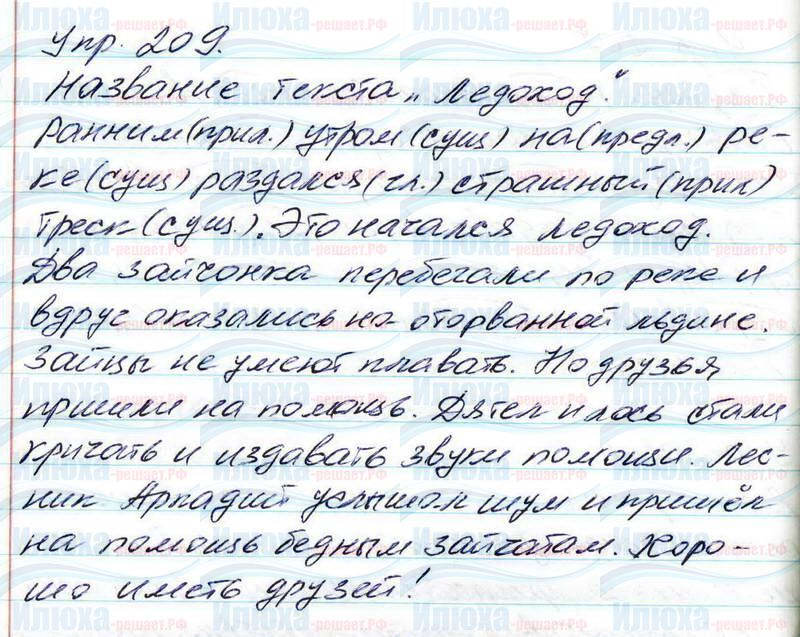 Упр. 209.
Название текста „Ледоход."
Ранним(прил.) утром(сущ) на(предл.) ре-
ке(сущ) раздался(гл.) страшный(прил)
треск(сущ.). Это начался ледоход.
Два зайчонка перебегали по реке и
вдруг оказались на оторванной льдине.
Зайцы не умеют плавать. Но друзья
пришли на помощь. Дятел и лось стали
кричать и издавать звуки помощи. Лес-
ник Аркадий услышал шум и пришёл
на помощь бедным зайчатам. Хоро-
шо иметь друзей!
Илюха-решает.РФ